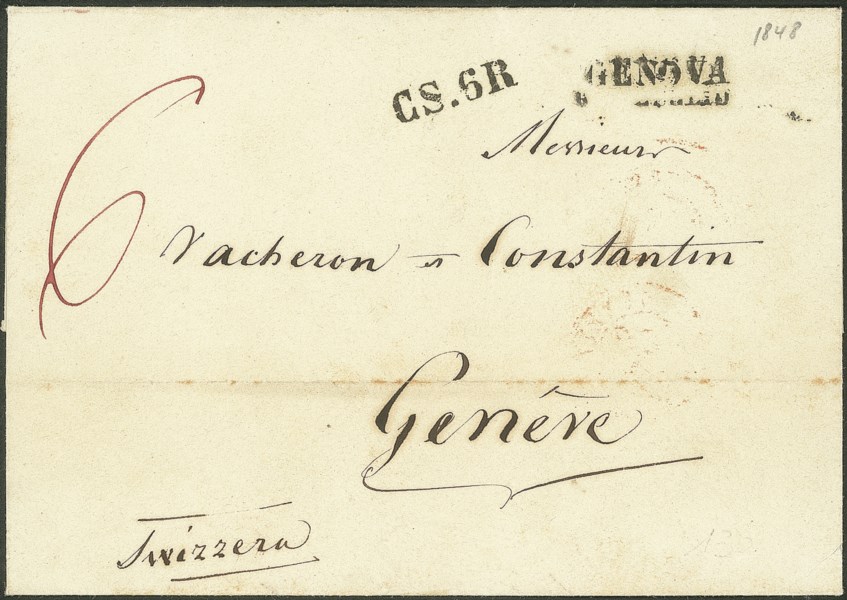 1848
CS.6R GENOVA
LUGLIO
Messieurs
6
Vacheron et Constantin
Genève
Svizzera